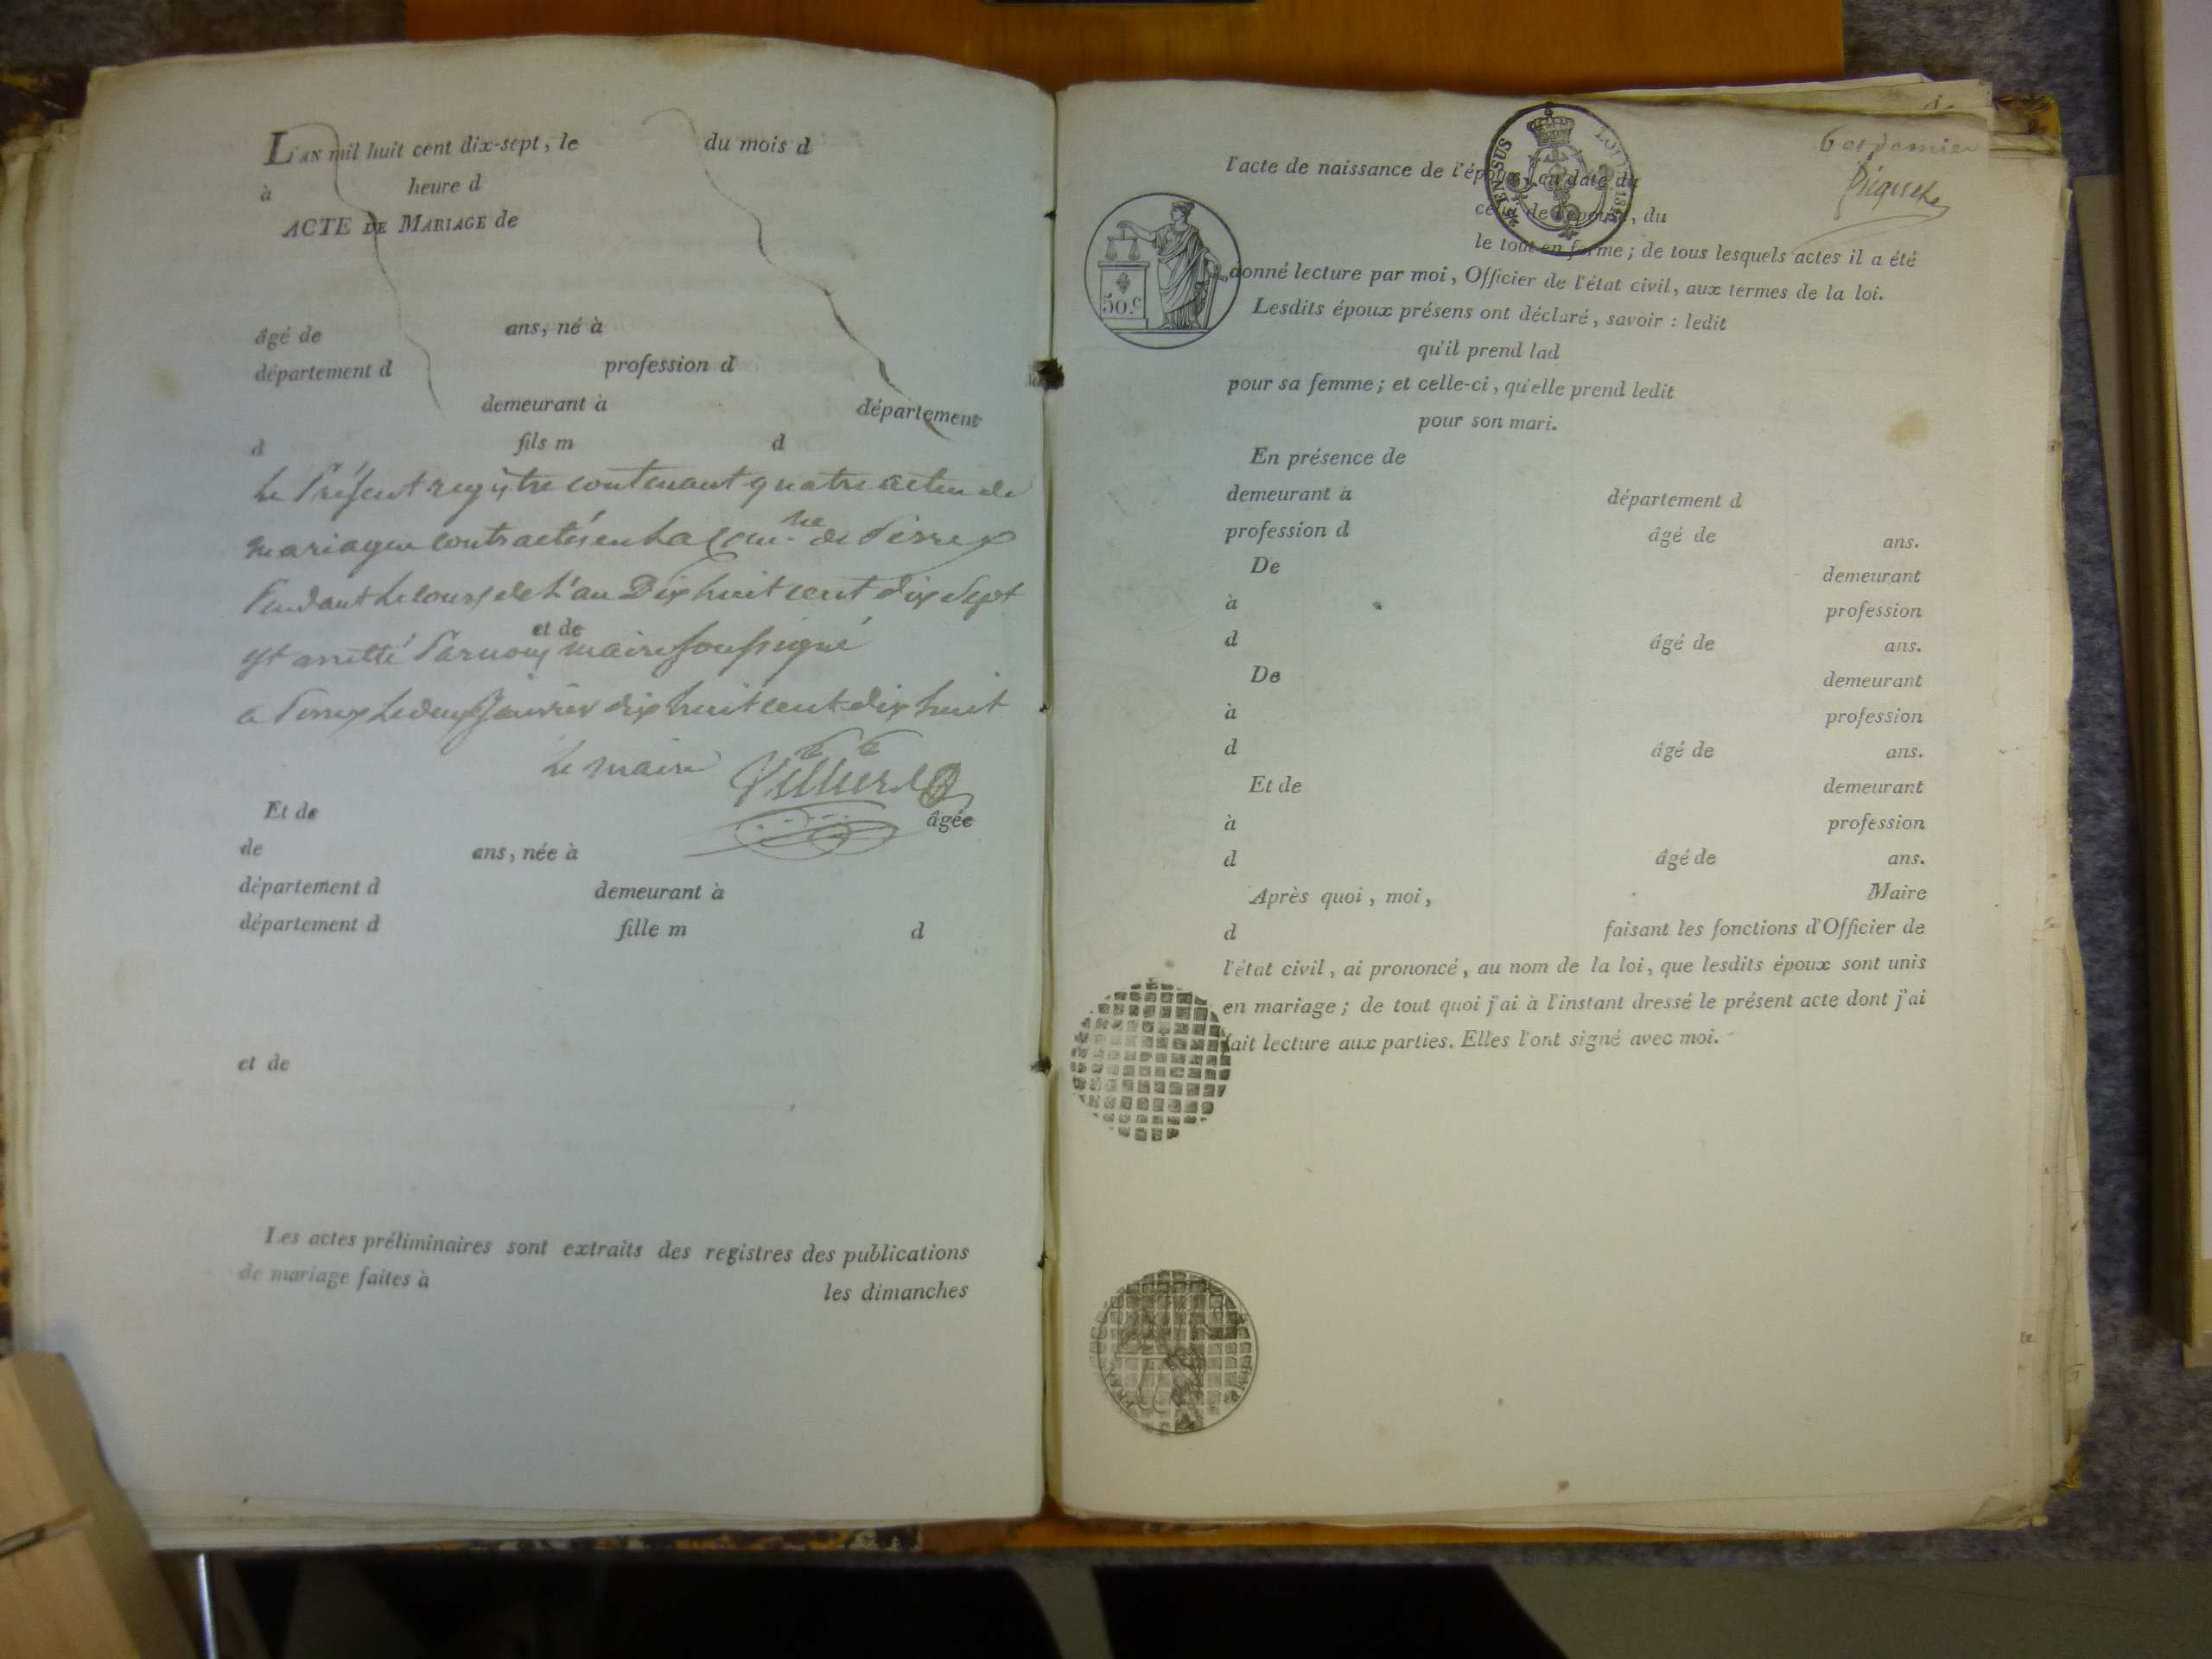 L'AN mil huit cent dix-sept, le du mois d
à heure d
ACTE DE MARIAGE de
âgé de ans, né à
département d profession d
demeurant à département
d fils m d
Le Présent registre contenant quatre actes de
mariages contractés en La Com.ne de Perrex
Pendant Le cours de L'an Dix huit cent dix Sept
est arretté Par nous maire soussigné
et de
a Perrex Le deux Janvier dix huit cent dix huit
Le maire
Et de âgée
de ans, née à
département d demeurant à
département d fille m d
et de
Les actes préliminaires sont extraits des registres des publications
de mariage faites à les dimanches
6 et dernier
l'acte de naissance de l'époux, en date du
celui de l'épouse, du
le tout en forme; de tous lesquels actes il a été
donné lecture par moi, Officier de l'état civil, aux termes de la loi.
50.c
Lesdits époux présens ont déclaré, savoir : ledit
qu'il prend lad
pour sa femme; et celle-ci, qu'elle prend ledit
pour son mari.
En présence de
demeurant à département d
profession d âgé de ans.
De demeurant
à profession
d âgé de ans.
De demeurant
à profession
d âgé de ans.
Et de demeurant
à profession
d âgé de ans.
Après quoi, moi, Maire
d faisant les fonctions d'Officier de
l'état civil, ai prononcé, au nom de la loi, que lesdits époux sont unis
en mariage; de tout quoi j'ai à l'instant dressé le présent acte dont j'ai
fait lecture aux parties. Elles l'ont signé avec moi.